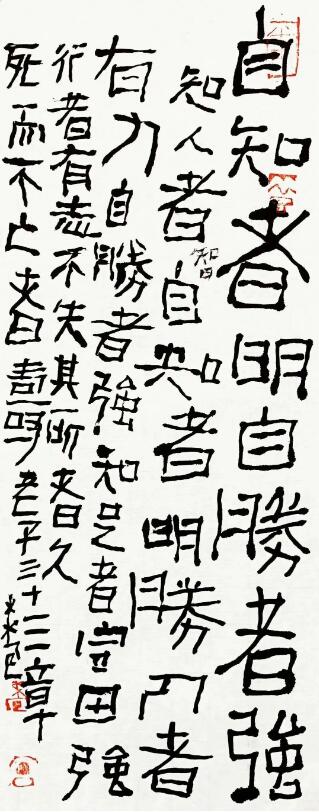 自知者明自勝者強
知人者智自知者明勝人者
有力自勝者強知足者富強
行者有志不失其所者久
死而不亡者壽老子三十三章